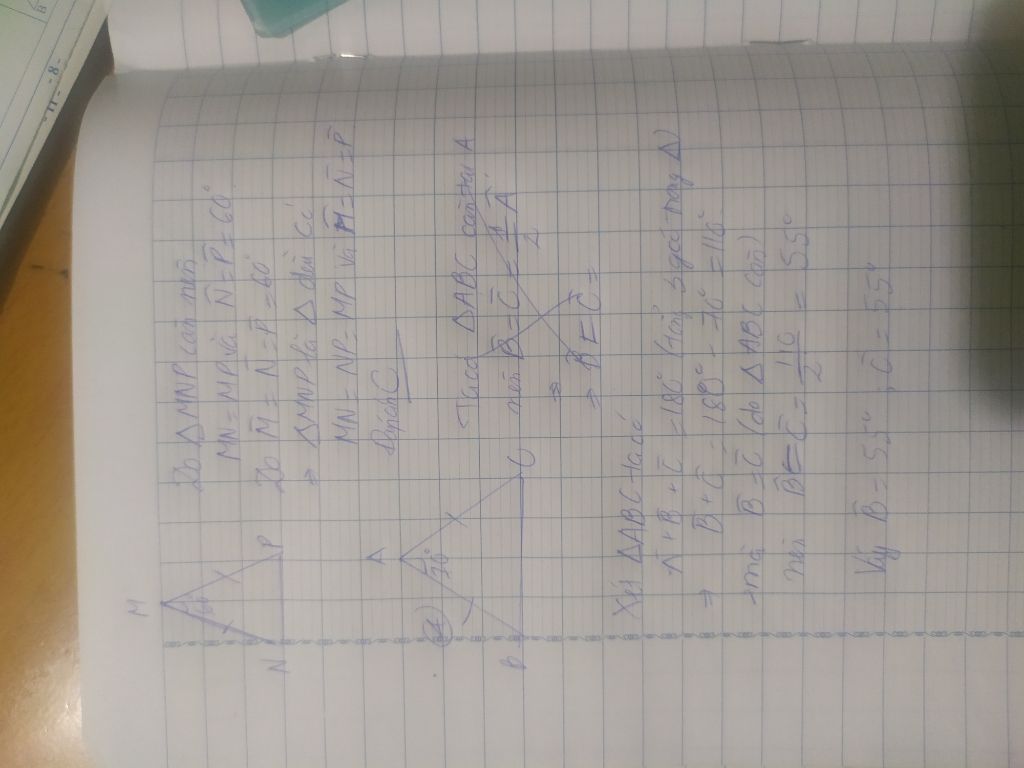 M
60°
N
P
Do ΔMNP cân nên
MN = MP và N̂ = P̂ = 60°
Do M̂ = N̂ = P̂ = 60°
⇒ ΔMNP là Δ đều có
MN = NP = MP và M̂ = N̂ = P̂
A
70°
B
C
a)
Ta có ΔABC cân tại A
nên B̂ = Ĉ = 1/2 Â
⇒
⇒ B̂ = Ĉ =
Xét ΔABC ta có
Â + B̂ + Ĉ = 180° (tổng 3 góc trong Δ)
⇒ B̂ + Ĉ = 180° - 70° = 110°
mà B̂ = Ĉ (do ΔABC cân)
nên B̂ = Ĉ = 110/2 = 55°
Vậy B̂ = 55°, Ĉ = 55°